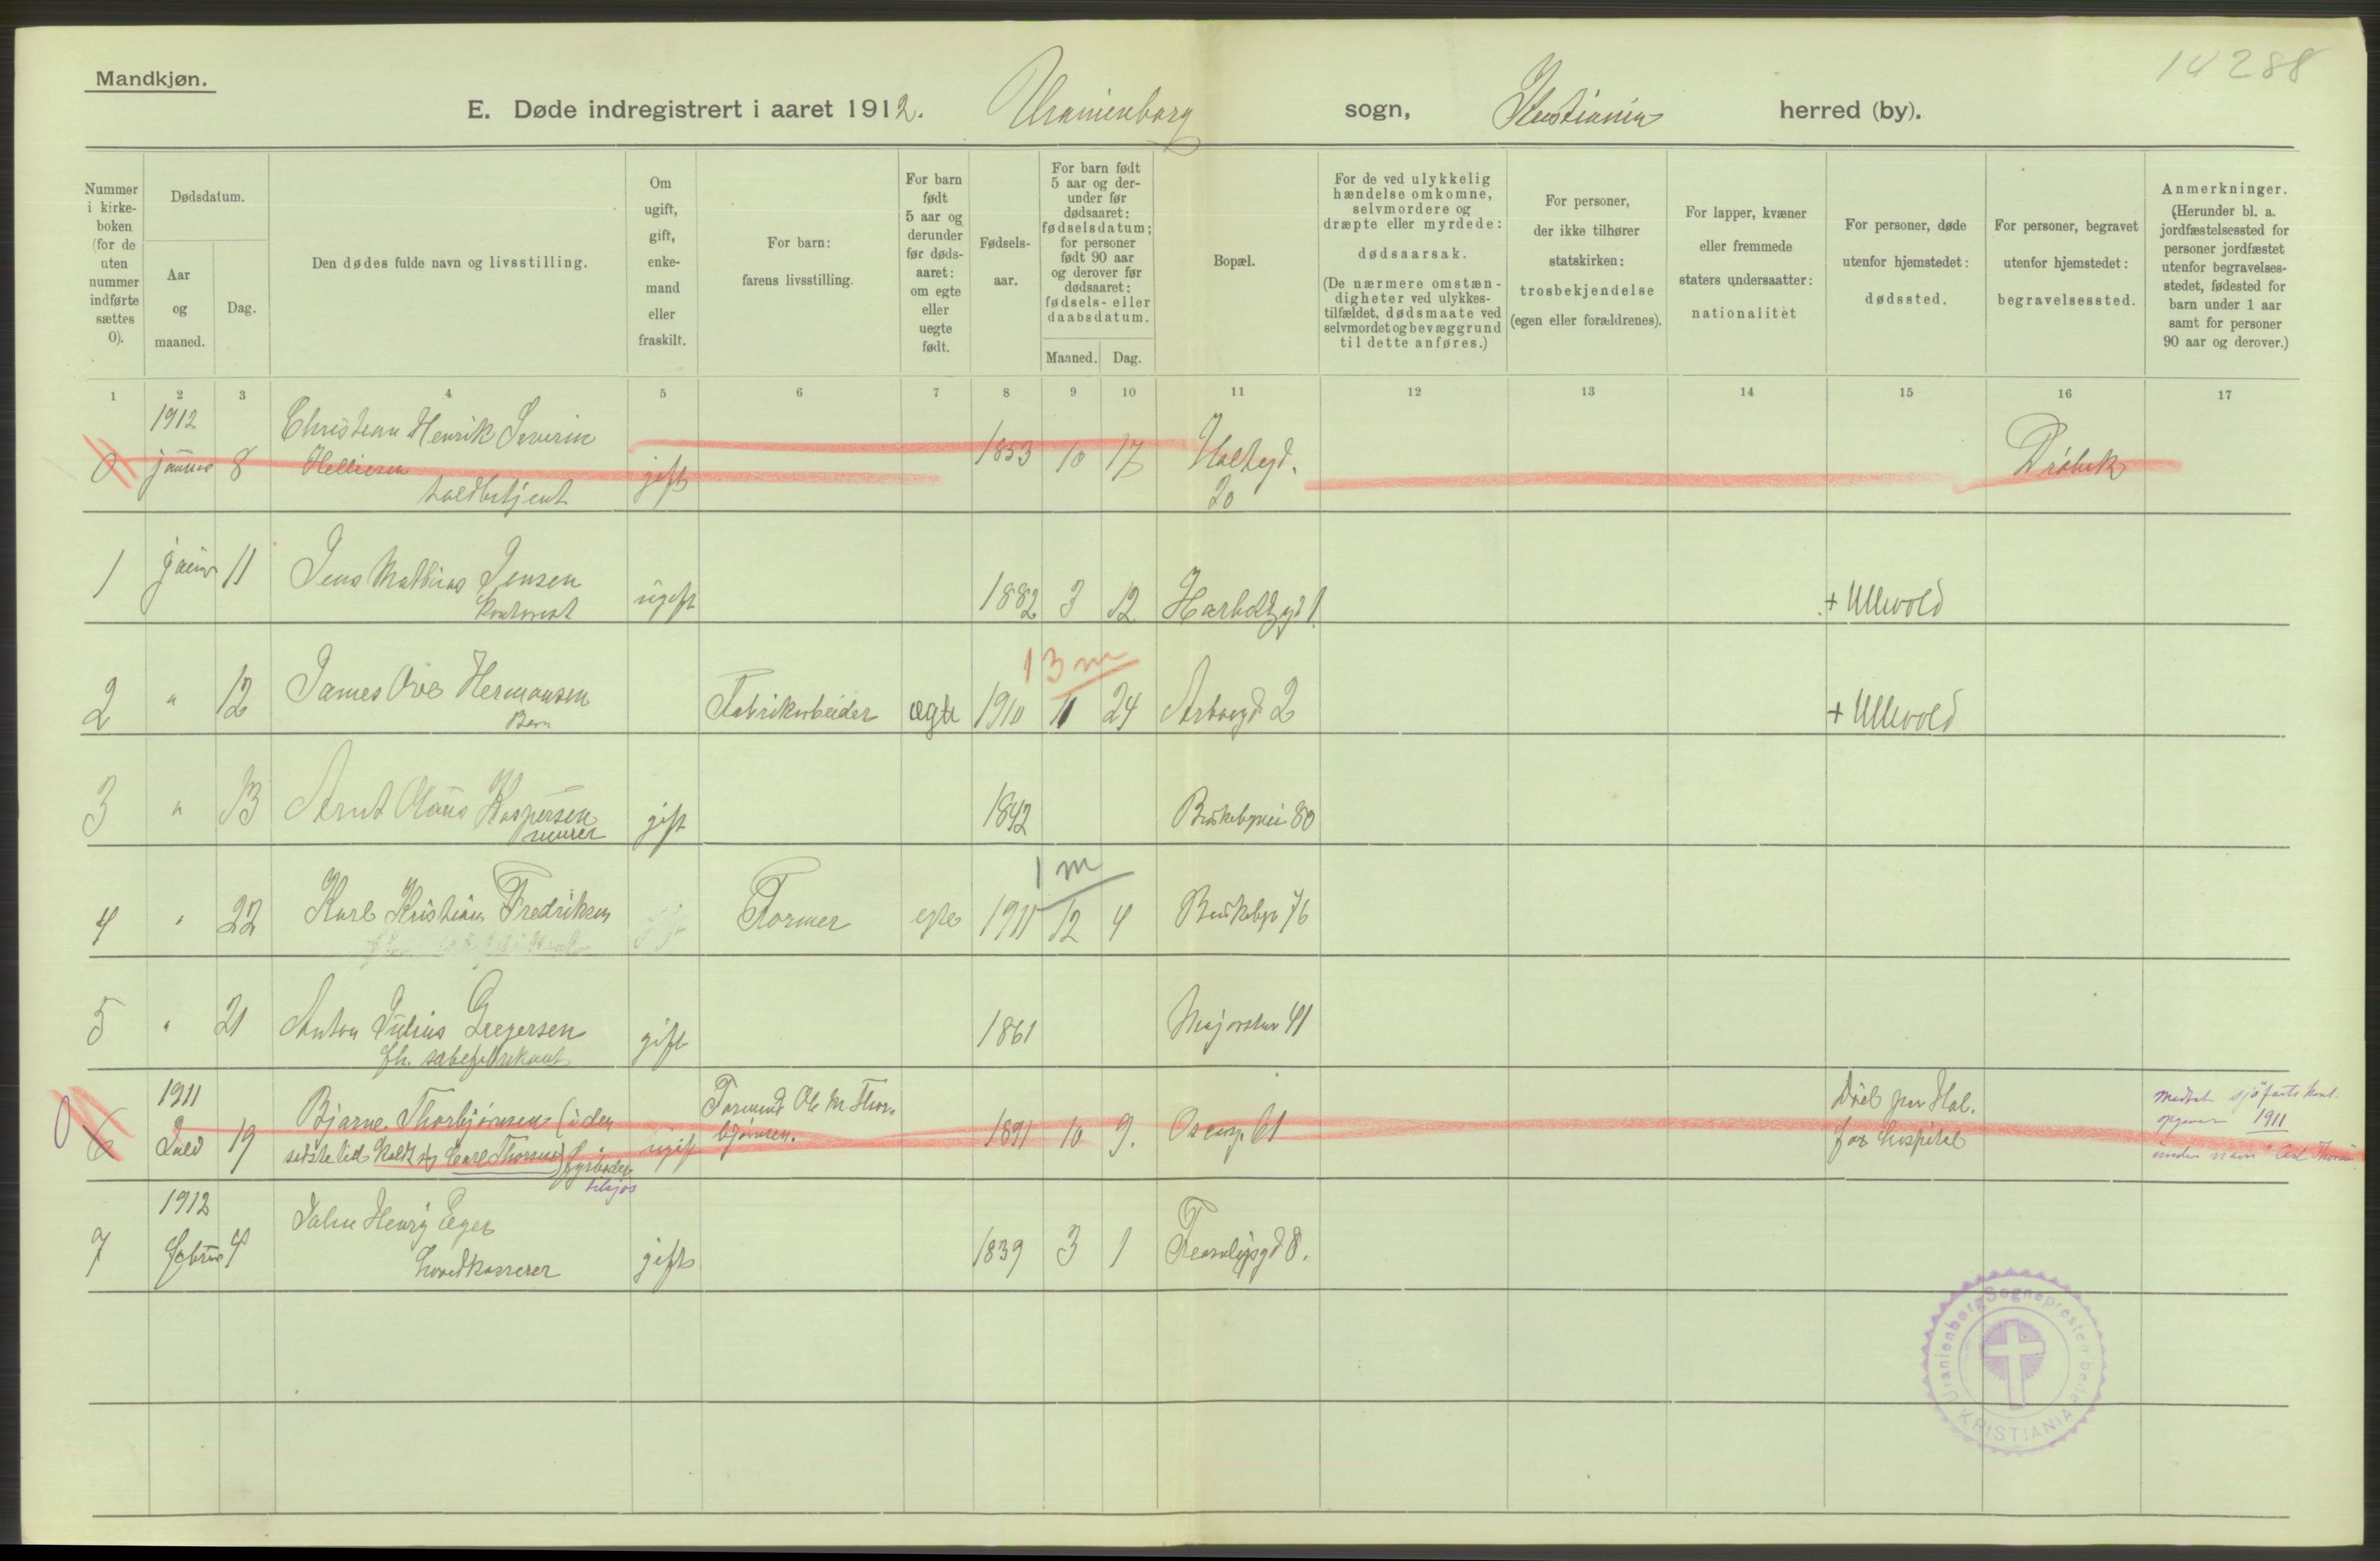 Mandkjøn.
14288
E. Døde indregistrert i aaret 1912. Uranienborg sogn, Kristiania herred (by).
Nummer i kirkeboken (for de uten nummer indførte sættes 0).
Dødsdatum.
Aar og maaned.
Dag.
Den dødes fulde navn og livsstilling.
Om ugift, gift, enkemand eller fraskilt.
For barn: farens livsstilling.
For barn født 5 aar og derunder før dødsaaret: om egte eller uegte født.
Fødselsaar.
For barn født 5 aar og derunder før dødsaaret: fødselsdatum; for personer født 90 aar og derover før dødsaaret: fødsels- eller daabsdatum.
Maaned. Dag.
Bopæl.
For de ved ulykkelig hændelse omkomne, selvmordere og dræpte eller myrdede: dødsaarsak. (De nærmere omstændigheter ved ulykkestilfældet, dødsmaate ved selvmordet og bevæggrund til dette anføres.)
For personer, der ikke tilhører statskirken: trosbekjendelse (egen eller forældrenes).
For lapper, kvæner eller fremmede staters undersaatter: nationalitet
For personer, døde utenfor hjemstedet: dødssted.
For personer, begravet utenfor hjemstedet: begravelsessted.
Anmerkninger. (Herunder bl. a. jordfæstelsessted for personer jordfæstet utenfor begravelsesstedet, fødested for barn under 1 aar samt for personer 90 aar og derover.)
1 2 3 4 5 6 7 8 9 10 11 12 13 14 15 16 17
1912
0 januar 8 Christian Henrik Severin Helliesen toldbetjent gift 1853 10 17 Holtegd. 20 Drøbak
1 januar 11 Jens Mathias Jensen Kontorist ugift 1882 3 12 + Ullevold
13 m
2 " 12 James Ove Hermansen Barn Fabrikarbeider ægte 1910 11 24 2 + Ullevold
3 " 13 Arnt Olaus Kaspersen murer gift 1842 80
1 m
4 " 22 Karl Kristian Fredriksen Former egte 1911 12 4 76
5 " 21 Anton Julius Gregersen fh. sæbefabrikant gift 1861 Majorstuv 41
1911
0 6 Juli 19 Bjarne Thorbjørnsen (i den sidste tid kaldt sig Carl Thorsen) fyrbøder tilsjøs ugift Formand Ole M. Thorbjørnsen. 1891 10 9. Oscarsg. 61 hospital
1911
under navn Carl Thorsen
1912
7 februar 4 John Henrij Eger hovedkasserer gift 1839 3 1 8.
Uranienborg Sogneprestembede
KRISTIANIA